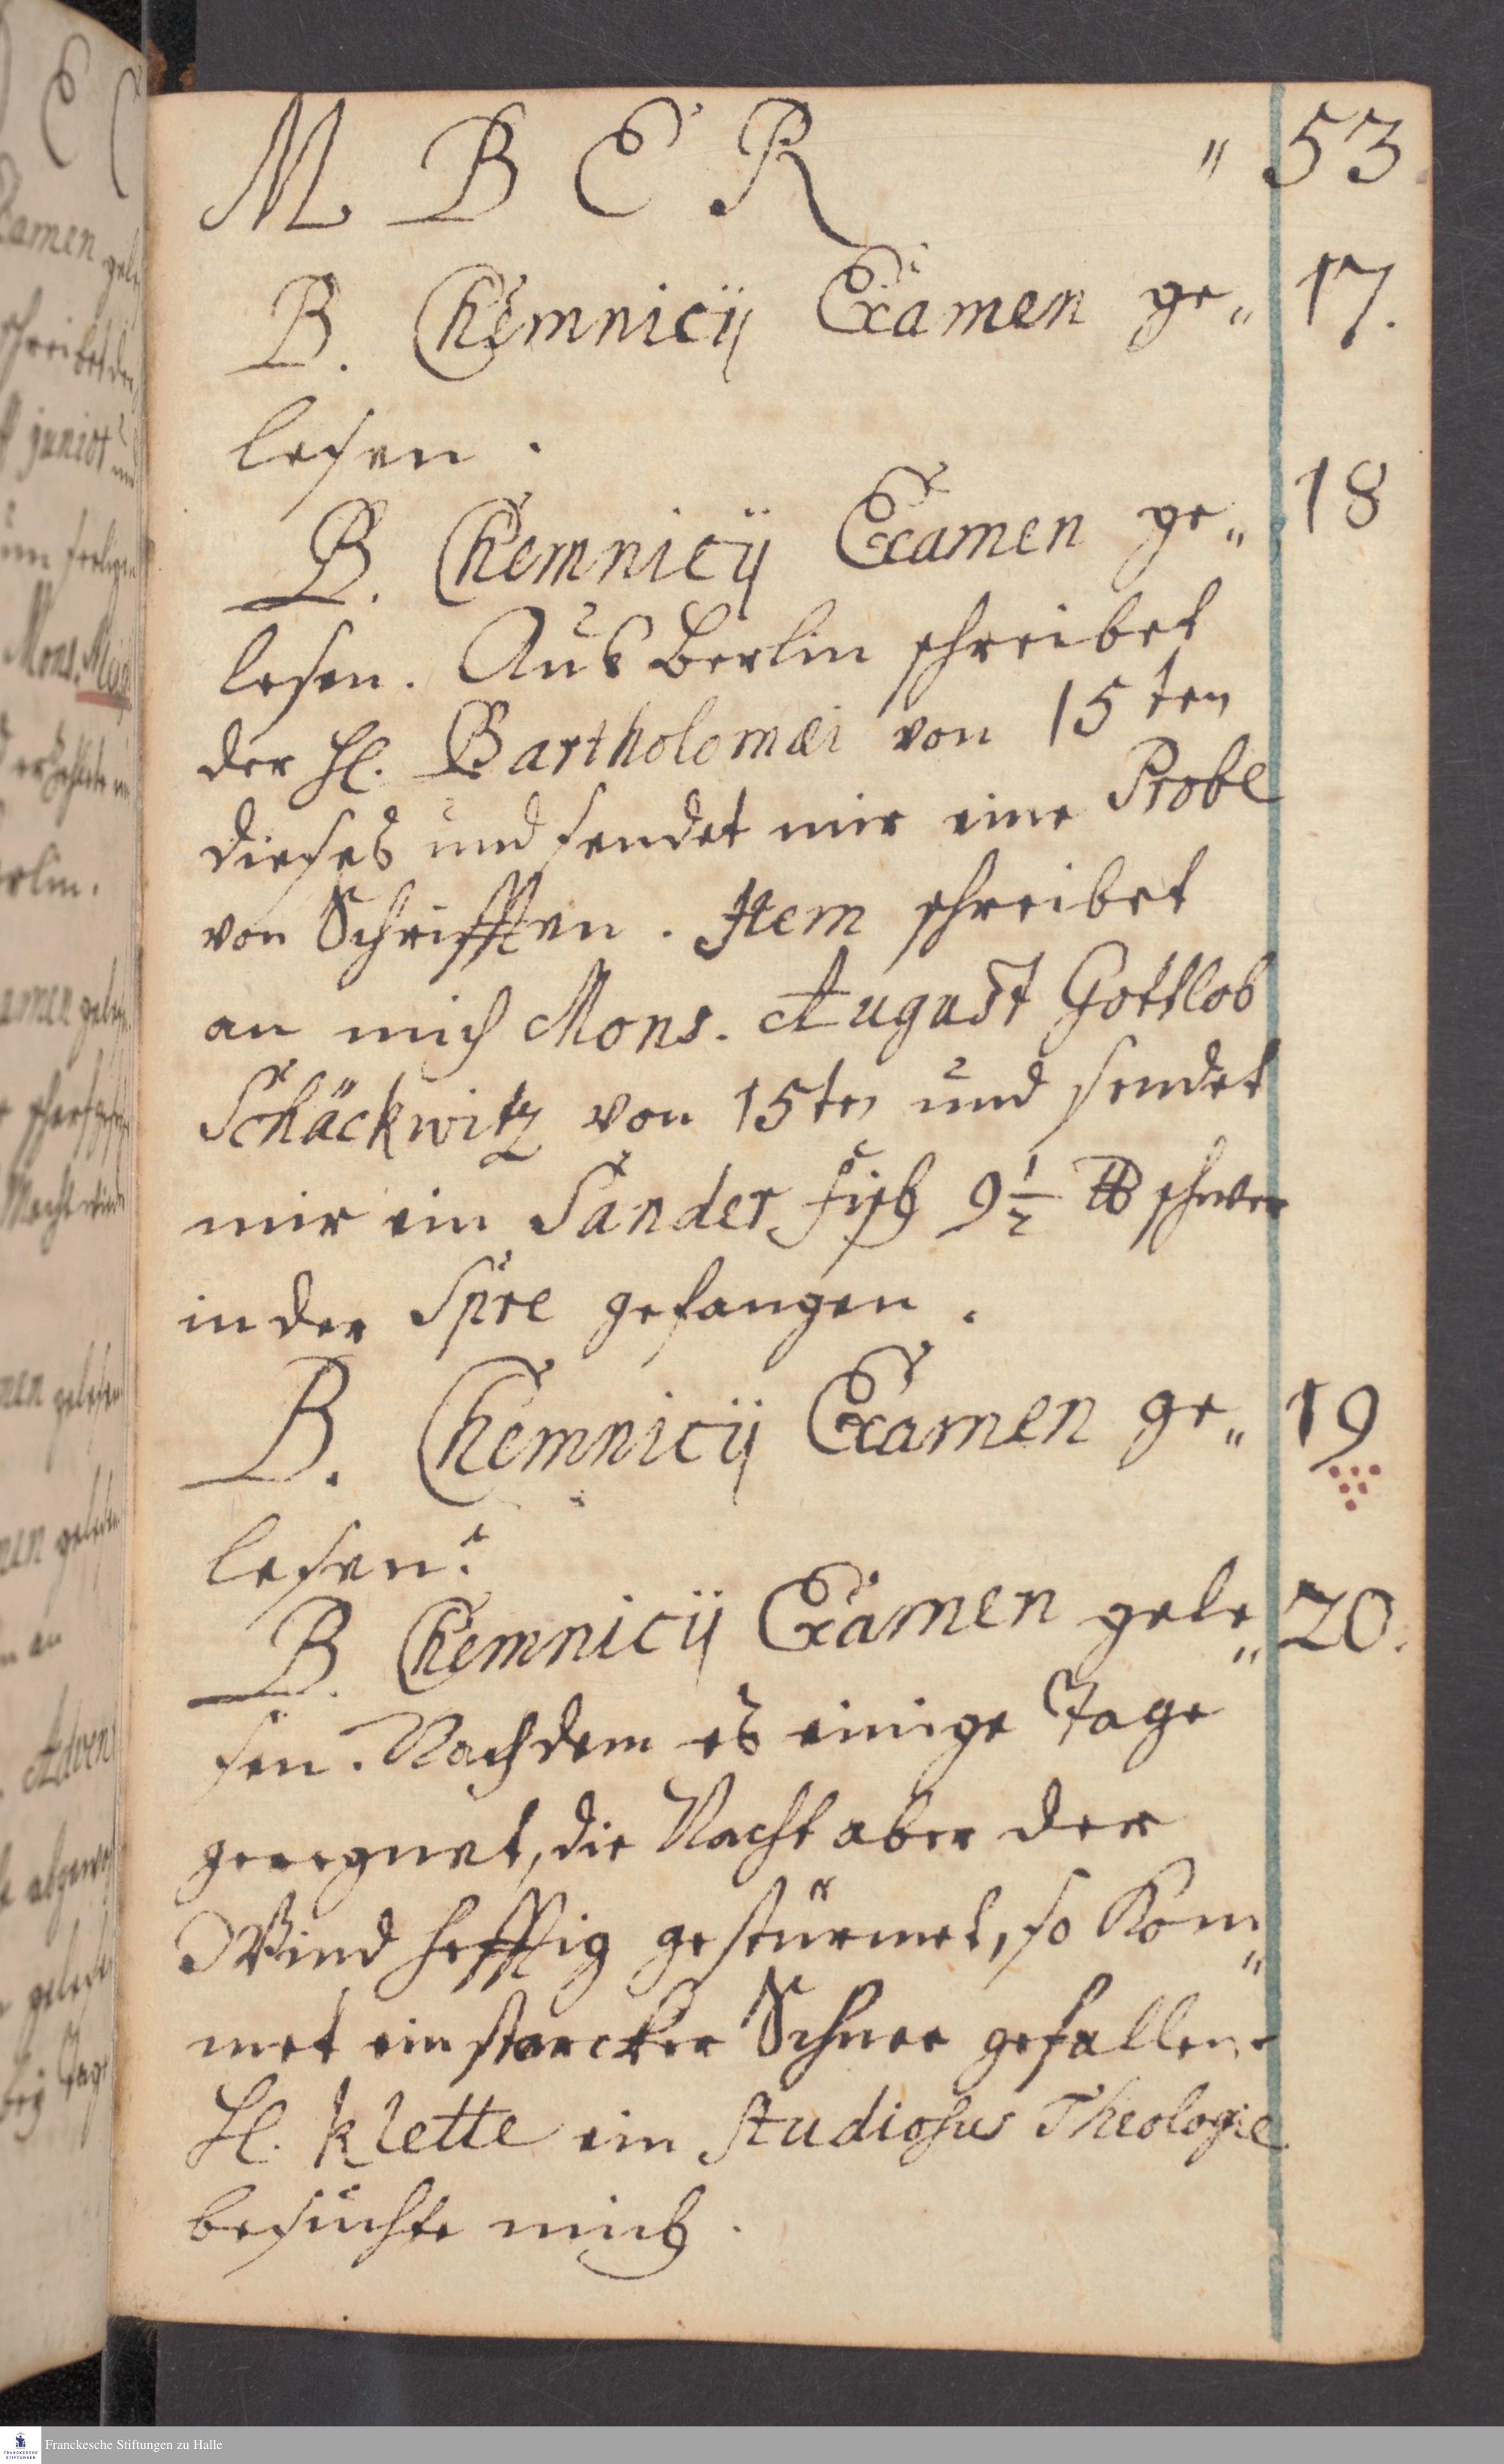 M B E R „ 53
B. Chemnicij Examen ge„ 17.
lesen.
B. Chemnicij Examen ge„ 18
lesen. Aus Berlin schreibet
der H. Bartholomæi von 15ten
dieses und sendet mir eine Probe
von Schrifften. Item schreibet
an mich Mons. August Gottlob
Schäckwitz von 15ten und sendet
mir ein Sander Fisch 9 1/2 ℔ schwer
in der Spre gefangen.
B. Chemnicij Examen ge„ 19
lesen.
B. Chemnicij Examen gele„ 20.
sen. Nachdem es einige Tage
geregnet, die Nacht aber der
Wind hefftig gestürmet, so kom„
met ein starcker Schnee gefallen.
H. Klette ein Studiosus Theologie
besuchte mich.
Franckesche Stiftungen zu Halle